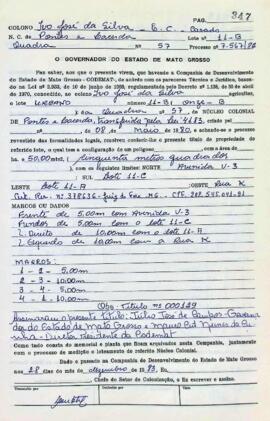 PAG. 347
Colono Ivo José da Silva - B.C. - Casado
N. C. de Pontes e Lacerda Lote n.º 11-B
Quadra n.º 57 Processo n.º 7.567/82
O GOVERNADOR DO ESTADO DE MATO GROSSO
Faz saber, aos que o presente virem, que havendo a Companhia de Desenvolvimento
do Estado de Mato Grosso - CODEMAT, de acordo com os pareceres Técnico e Jurídico, basea-
dos na Lei de 10 de junho de regulamentada pelo Decreto n.º 1.138, de
de 1970, deferido o colono Ivo José da Silva
o lote Urbano n.º 11-B, onze-B
da Quadra n.º 57, do NÚCLEO COLONIAL
DE Pontes e Lacerda, transferida pela lei 4183, criado
de 08 de Maio de 80 e achando-se o presente processo
revestido das formalidades legais, resolveu conferir-lhe o presente título de propriedade do
referido lote, o qual tem a configuração de um polígono com a
área de 50,00 mts², (cinquenta metros quadrados
com os seguintes limites: NORTE Avenida V-3
SUL Lote 11-C
LESTE Lote 11-A OESTE Rua X
MARCOS OU DADOS
Frente de 5.00m com Avenida V-3
Fundos de 5.00m com o lote 11-C
L. Direito de 10.00m com o lote 11-A
L. Esquerdo de 10.00m com a Rua X
MARCOS:
1 - 2 - 5.00m
2 - 3 - 10.00m
3 - 4 - 5.00m
4 - 1 - 10.00m
Obs. Título nº 000129
Assinaram o presente título: Júlio José de Campos - Governa-
dor do Estado de Mato Grosso e Mauro Cid Nunes da Cu-
nha - Diretor Presidente da Codemat.
Tudo como consta do memorial e planta que foram arquivados nesta Companhia, juntamente
com o processo de medição e loteamento do referido Núcleo Colonial.
Companhia de Desenvolvimento do Estado de Mato Grosso
aos 28 dias de dezembro de 1983. Eu,
Chefe do Setor de Colonização, a fiz escrever e assino.
Transcrito por: Conferido por: